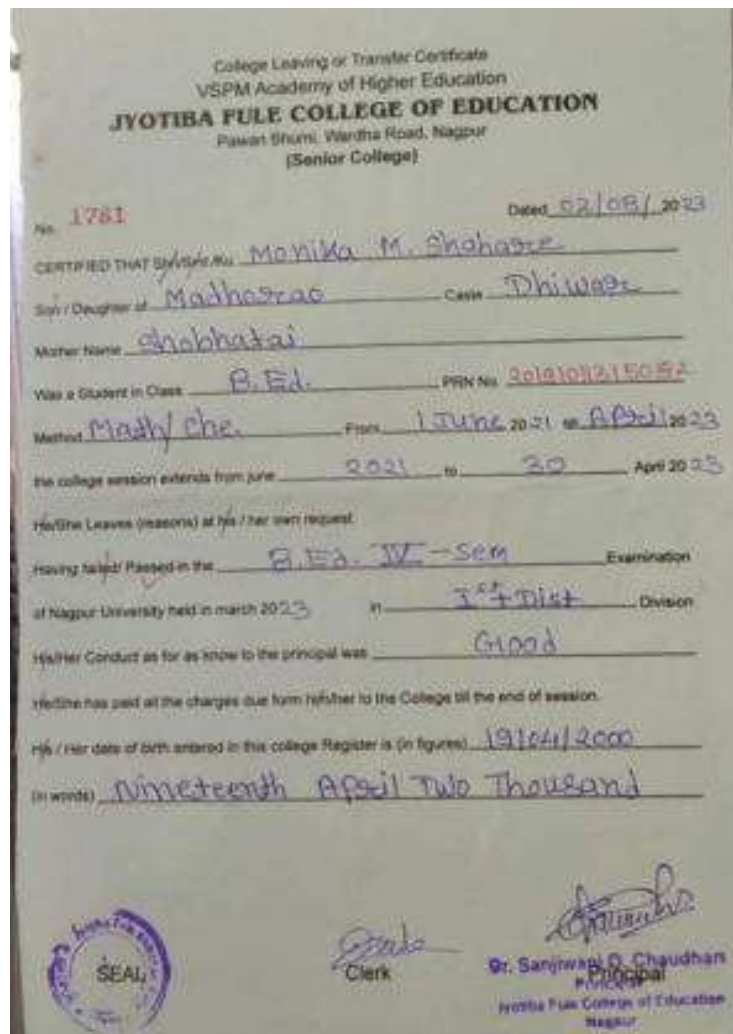 College Leaving or Transfer Certificate
VSPM Academy of Higher Education
JYOTIBA FULE COLLEGE OF EDUCATION
Pawan Bhumi, Wardha Road, Nagpur
(Senior College)
No. 1781 Dated 02/08/2023
CERTIFIED THAT Monika M. Shahare
Son / Daughter of Madhaorao Caste Dhiwar
Mother Name Shobhatai
Was a Student in Class B.Ed. PRN No.
Method Math/ Che. From 1 June 2021 to April 2023
the college session extends from june 2021 to 30 April 2023
He/She Leaves (reasons) at his / her own request.
Having failed/ Passed in the B.Ed. IV - Sem Examination
of Nagpur University held in march 2023 in Ist Dist Division
His/Her Conduct as for as know to the principal was Good
He/She has paid all the charges due form his/her to the College till the end of session.
His / Her date of birth entered in this college Register is (in figures) 19/04/2000
(in words) Nineteenth April Two Thousand
SEAL Clerk Principal
Dr. Sanjiwani D. Chaudhari
Principal
Jyotiba Fule College of Education
Nagpur